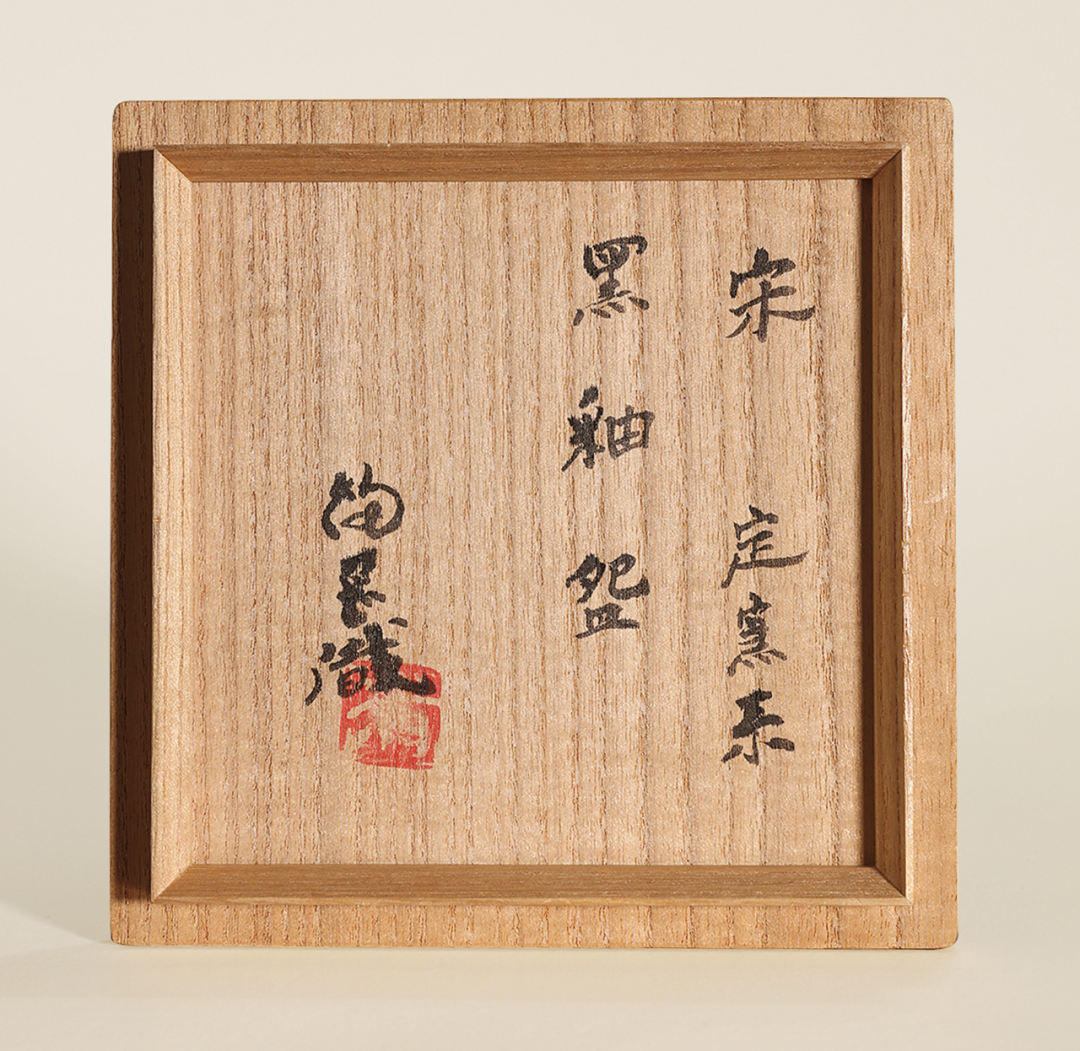 宋 定窯系
黑釉盌
識